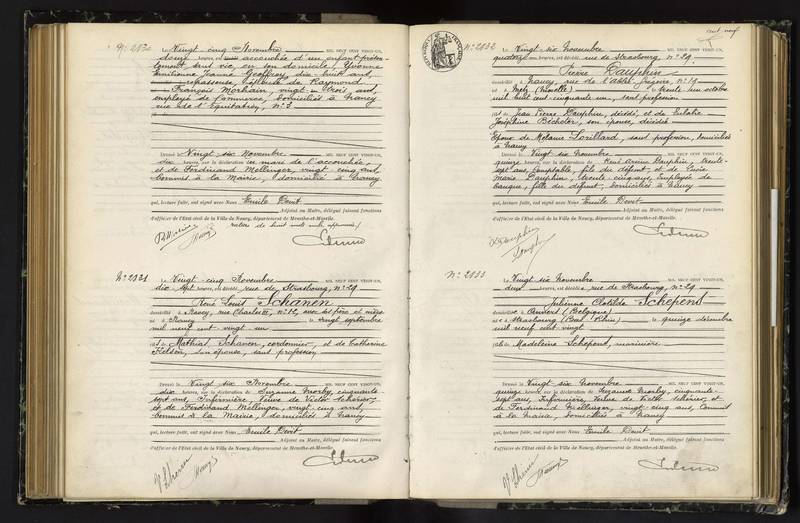 N° 2830
Le Vingt cinq Novembre MIL NEUF CENT VINGT-UN,
douze heures, est accouchée d'un enfant présen-
tement sans vie, en son domicile, Yvonne
Emilienne Jeanne Geoffroy, dix huit ans,
repasseuse, épouse de Raymond
François Morhain, vingt trois ans,
employé de commerce, domiciliés à Nancy
rue de l'Equitation, n° 3
Dressé le Vingt six Novembre MIL NEUF CENT VINGT-UN,
dix heures, sur la déclaration du mari de l'accouchée,
et de Ferdinand Mellinger, vingt cinq ans,
commis à la Mairie, domiciliés à Nancy
qui, lecture faite, ont signé avec Nous Emile Devit
Adjoint au Maire, délégué faisant fonctions
d'officier de l'Etat civil de la Ville de Nancy, département de Meurthe-et-Moselle.
N° 2831
Le Vingt-cinq Novembre MIL NEUF CENT VINGT-UN,
dix sept heures, est décédé, rue de Strasbourg, n° 29
René Louis Schanen
domicilié à Nancy, rue Charles III, avec ses père et mère
né à Nancy le vingt septembre
mil neuf cent vingt un
fils de Mathias Schanen, cordonnier, et de Catherine
son épouse, sans profession
Dressé le Vingt six Novembre MIL NEUF CENT VINGT-UN,
dix heures, sur la déclaration de Suzanne Morby, cinquante-
sept ans, Infirmière, Veuve de Victor
et de Ferdinand Mellinger, vingt-cinq ans,
commis à la Mairie, domiciliés à Nancy
qui, lecture faite, ont signé avec Nous Emile Devit
Adjoint au Maire, délégué faisant fonctions
d'officier de l'Etat civil de la Ville de Nancy, département de Meurthe-et-Moselle.
cent neuf
N° 2832
Le Vingt-six Novembre MIL NEUF CENT VINGT-UN,
quatorze heures, est décédé, rue de Strasbourg n° 29
Pierre Dauphin
domicilié à Nancy, rue de l'abbé Grégoire, n° 19
né à Metz (Moselle) le trente un octobre
mil huit cent cinquante un, sans profession
fils de Jean Pierre Dauphin, décédé, et de Eulalie
Joséphine Bécheter, son épouse, décédée
Epoux de Mélanie Sorillard, sans profession, domiciliée
à Nancy
Dressé le Vingt six Novembre MIL NEUF CENT VINGT-UN,
quinze heures, sur la déclaration de Dauphin, trente
sept ans, comptable, fils du défunt, et de Lucie
Marie Dauphin, trente cinq ans, Employée de
banque, fille du défunt, domiciliés à Nancy
qui, lecture faite, ont signé avec Nous Emile Devit
Adjoint au Maire, délégué faisant fonctions
d'officier de l'Etat civil de la Ville de Nancy, département de Meurthe-et-Moselle.
N° 2833
Le Vingt six Novembre MIL NEUF CENT VINGT-UN,
deux heures, est décédée, rue de Strasbourg, n° 29
Julienne Clotilde Schepens
domiciliée à Anvers (Belgique)
née à Strasbourg (Bas Rhin) le quinze décembre
mil neuf cent vingt
fille de Madeleine Schepens, marinière
Dressé le Vingt-six Novembre MIL NEUF CENT VINGT-UN,
quinze heures, sur la déclaration de Suzanne Morby, cinquante-
sept ans, Infirmière, Veuve de Victor et
de Ferdinand Mellinger, vingt-cinq ans, Commis
à la Mairie, domiciliés à Nancy
qui, lecture faite, ont signé avec Nous Emile Devit
Adjoint au Maire, délégué faisant fonctions
d'officier de l'Etat civil de la Ville de Nancy, département de Meurthe-et-Moselle.